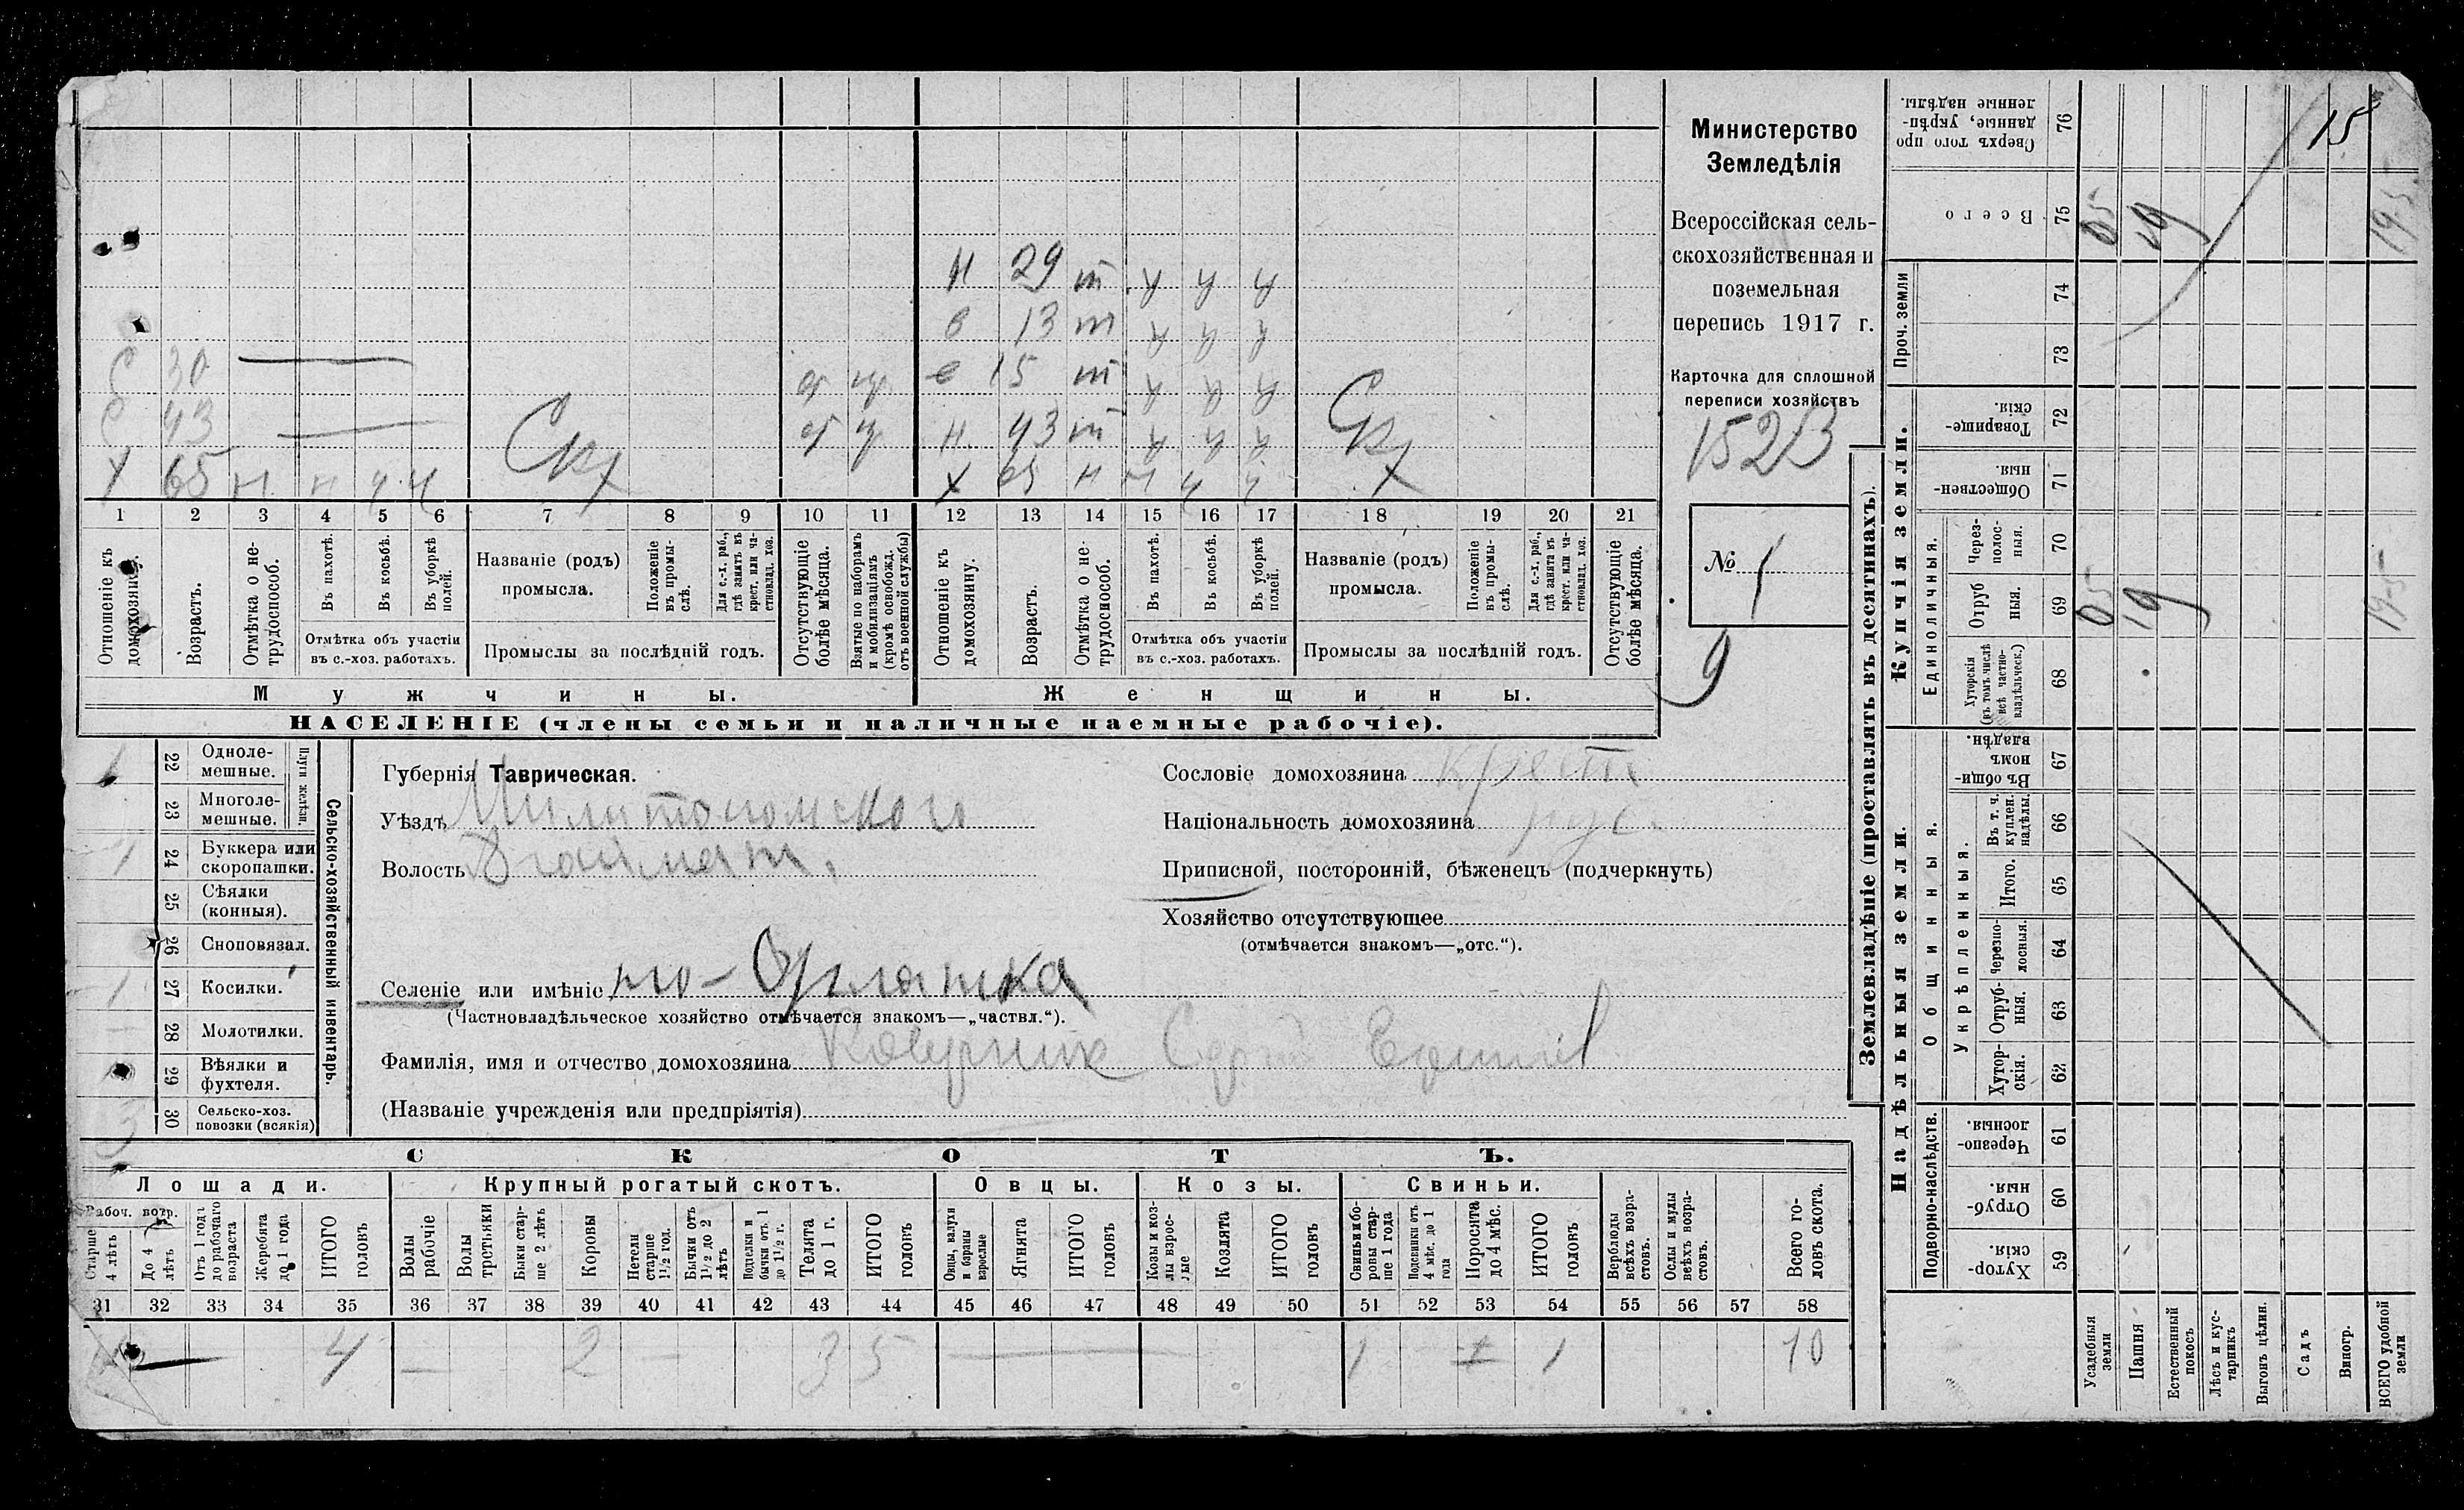 Министерство
Земледѣлія
Всероссійская сель-
скохозяйственная и
поземельная
перепись 1917 г.
Карточка для сплошной
переписи хозяйствъ
1523
№ 1
9
Н 29 т
в 13 т
С 30 в 15 т
С 43 Н 43 т
Х 65 Н Н Ч Ч Х 65 Н Н Ч Ч
Сх Сх
1 2 3 4 5 6 7 8 9 10 11 12 13 14 15 16 17 18 19 20 21
Отношеніе къ домохозяину.
Возрастъ.
Отмѣтка о не-
трудоспособ.
Въ пахотѣ.
Въ косьбѣ.
Въ уборкѣ полей.
Отмѣтка объ участіи
въ с.-хоз. работахъ.
Названіе (родъ)
промысла.
Положеніе въ промы-
слѣ.
Для с.-х. раб., гдѣ занятъ въ крест. или ча-
стновлад. хоз.
Промыслы за послѣдній годъ.
Отсутствующіе болѣе мѣсяца.
Взятые по наборамъ и мобилизаціямъ (кромѣ освобожд. отъ военной службы)
Отношеніе къ домохозяину.
Возрастъ.
Отмѣтка о не-
трудоспособ.
Въ пахотѣ.
Въ косьбѣ.
Въ уборкѣ полей.
Отмѣтка объ участіи
въ с.-хоз. работахъ.
Названіе (родъ)
промысла.
Положеніе въ промы-
слѣ.
Для с.-х. раб., гдѣ занята въ крест. или ча-
стновлад. хоз.
Промыслы за послѣдній годъ.
Отсутствующіе болѣе мѣсяца.
Мужчины.
Женщины.
НАСЕЛЕНІЕ (члены семьи и наличные наемные рабочіе).
Сельско-хозяйственный инвентарь.
Плуги желѣзн.
1 22 Одноле-
мешные.
23 Многоле-
мешные.
1 24 Буккера или
скоропашки.
25 Сѣялки
(конныя).
26 Сноповязал.
1 27 Косилки.
28 Молотилки.
29 Вѣялки и
фухтеля.
3 30 Сельско-хоз.
повозки (всякія)
Губернія Таврическая.
Уѣздъ
Волость
Селеніе или имѣніе
(Частновладѣльческое хозяйство отмѣчается знакомъ—„частвл.“).
Фамилія, имя и отчество домохозяина
(Названіе учрежденія или предпріятія)
Сословіе домохозяина крест
Національность домохозяина рус.
Приписной, посторонній, бѣженецъ (подчеркнуть)
Хозяйство отсутствующее
(отмѣчается знакомъ—„отс.“).
СКОТЪ.
Лошади.
Крупный рогатый скотъ.
Овцы.
Козы.
Свиньи.
Рабоч. возр.
Старше 4 лѣтъ
До 4 лѣтъ
Отъ 1 года до рабочаго возраста
Жеребята до 1 года
ИТОГО головъ
Волы рабочіе
Волы третьяки
Быки стар-
ше 2 лѣтъ
Коровы
Нетели старше 1½ год.
Бычки отъ 1½ до 2 лѣтъ
Подтелки и бычки отъ 1 до 1½ г.
Телята до 1 г.
ИТОГО головъ
Овцы, валухи и бараны взрослые
Ягнята
ИТОГО головъ
Козы и коз-
лы взрос-
лые
Козлята
ИТОГО головъ
Свиньи и бо-
ровы стар-
ше 1 года
Подсвинки отъ 4 мѣс. до 1 года
Поросята до 4 мѣс.
ИТОГО головъ
Верблюды всѣхъ возра-
стовъ.
Ослы и мулы всѣхъ возра-
стовъ.
Всего го-
ловъ скота.
31 32 33 34 35 36 37 38 39 40 41 42 43 44 45 46 47 48 49 50 51 52 53 54 55 56 57 58
4 — 4 — 2 — 3 5 — 1 1 10
Землевладѣніе (проставлять въ десятинахъ).
Купчія земли.
Надѣльныя земли.
Сверхъ того про
данные, укрѣп-
ленные надѣлы. 76 15
Всего 75 05 19 19-5
Проч. земли 74
73
Товарище-
скія. 72
Обществен-
ныя. 71
Единоличныя.
Через-
полос-
ныя. 70
Отруб
ныя. 69 05 19 19-5
Хуторскія
(въ томъ числѣ
всѣ частно-
владѣльческ.) 68
Общинныя.
Въ общи-
номъ
владѣн. 67
Укрѣпленныя.
Въ т. ч.
куплен.
надѣлы. 66
Итого. 65
Черезпо-
лосныя. 64
Отруб-
ныя. 63
Хутор-
скія. 62
Подворно-наслѣдств.
Черезпо-
лосныя. 61
Отруб-
ныя. 60
Хутор-
скія. 59
Усадебныя земли
Пашня
Естественный покосъ
Лѣсъ и кус-
тарникъ
Выгонъ цѣлин.
Садъ
Виногр.
ВСЕГО удобной земли